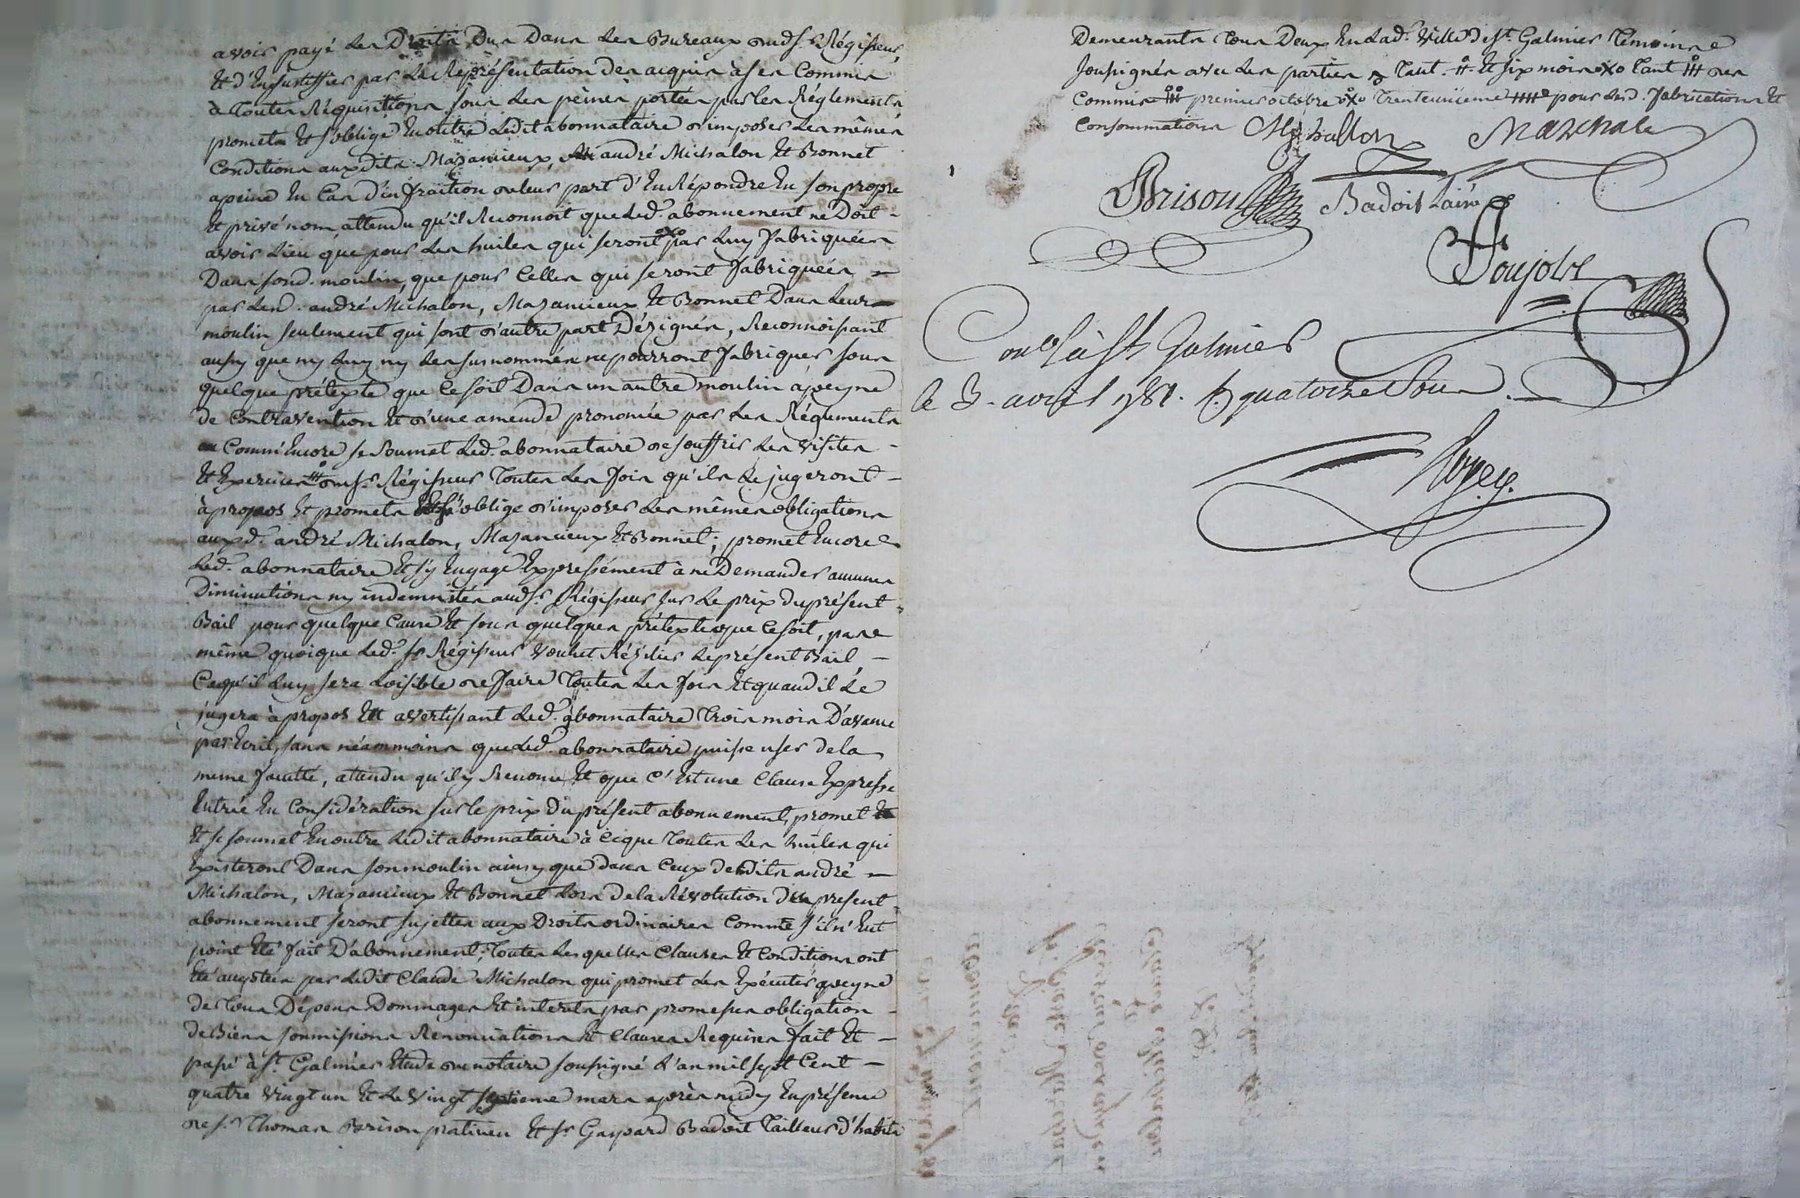 avoir payé les Droits Dus Dans les Bureaux dudt Sr Régisseur,
Et d'En justiffier par la Représentation des acquis à ses Commis
à toutes Réquisitions sous les peines portées par les Réglements
promets Et s'oblige En outre ledit abonnataire d'imposer les mêmes
Conditions auxdits Mazancieux, andré Michalon Et Bonnet
a peine En Cas d'infraction de leur part d'En Répondre En son propre
Et privé nom, attendu qu'il Reconnoit que led. abonnement ne Doit
avoir Lieu que pour les huiles qui seront oxo par Luy fabriquées
Dans sond. moulin, que pour Celles qui seront fabriquées
par lesd. andré Michalon, Mazancieux Et Bonnet Dans Leur
moulin seulement qui sont d'autre part Dézignés, Reconnoissant
aussy que ny Luy ny les susnommés ne pourront fabriquer sous
quelque prétexte que Ce soit Dans un autre moulin à peyne
de Contravention Et d'une amende prononcée par les Réglements
Comm'Encore se soumet led. abonnataire de souffrir les visites
Et Exercices # dudt Sr Régisseur toutes les fois qu'ils le jugeront
à propos Et promets Et s'oblige d'imposer les mêmes obligations
auxd. andré Michalon, Mazancieux Et Bonnet; promet Encore
led. abonnataire Et s'y Engage Expressément à ne Demander aucunes
Diminutions ny indemnités audt Sr Régisseur sur le prix du présent
Bail pour quelque Cause Et sous quelques prétexte que Ce soit, pas
même quoique led. Sr Régisseur voulut Rézilier le présent Bail,
Ce qu'il Luy sera Loisible de faire toutes les fois Et quand il le
jugera à propos En avertissant led. abonnataire trois mois D'avance
par Ecrit, sans néammoins que led. abonnataire puisse user de la
meme faculté, atendu qu'il y Renonce Et que C'Est une Clause Expresse
Entrée En Considération sur le prix du présent abonnement, promet
Et se soumet En outre ledit abonnataire à Ce que toutes les huiles qui
Existeront Dans son moulin ainsy que dans Ceux desdits andré
Michalon, Mazancieux Et Bonnet Lors de la Révolution Du present
abonnement seront sujettes aux Droits ordinaires Comme s'il n'Eut
point Eté fait D'abonnement; toutes lesquelles Clauses Et Conditions ont
Eté aceptées par ledit Claude Michalon qui promet les Exécuter à peyne
de tous Dépens Dommages Et interets par promesses obligation
de Biens soumissions Renonciations Et Clauses Requises fait Et
passé à St. Galmier Etude du notaire soussigné L'an mil sept Cent
quatre vingt un Et Le vingt septieme mars après midy En présence
de Sr Thomas Brison praticien Et Sr Gaspard Badoit Tailleur d'habits
Demeurants tous Deux En lad. ville de St Galmier Témoins
soussignés avec les parties
Commis # premier octobre oxo trentunieme pour lesd. fabrications Et
Consommations Michallon Marchale
Brison Badoit Lainé
Poujolx
Conlé à St Galmier
le 3. avril 1781. quatorze Sous